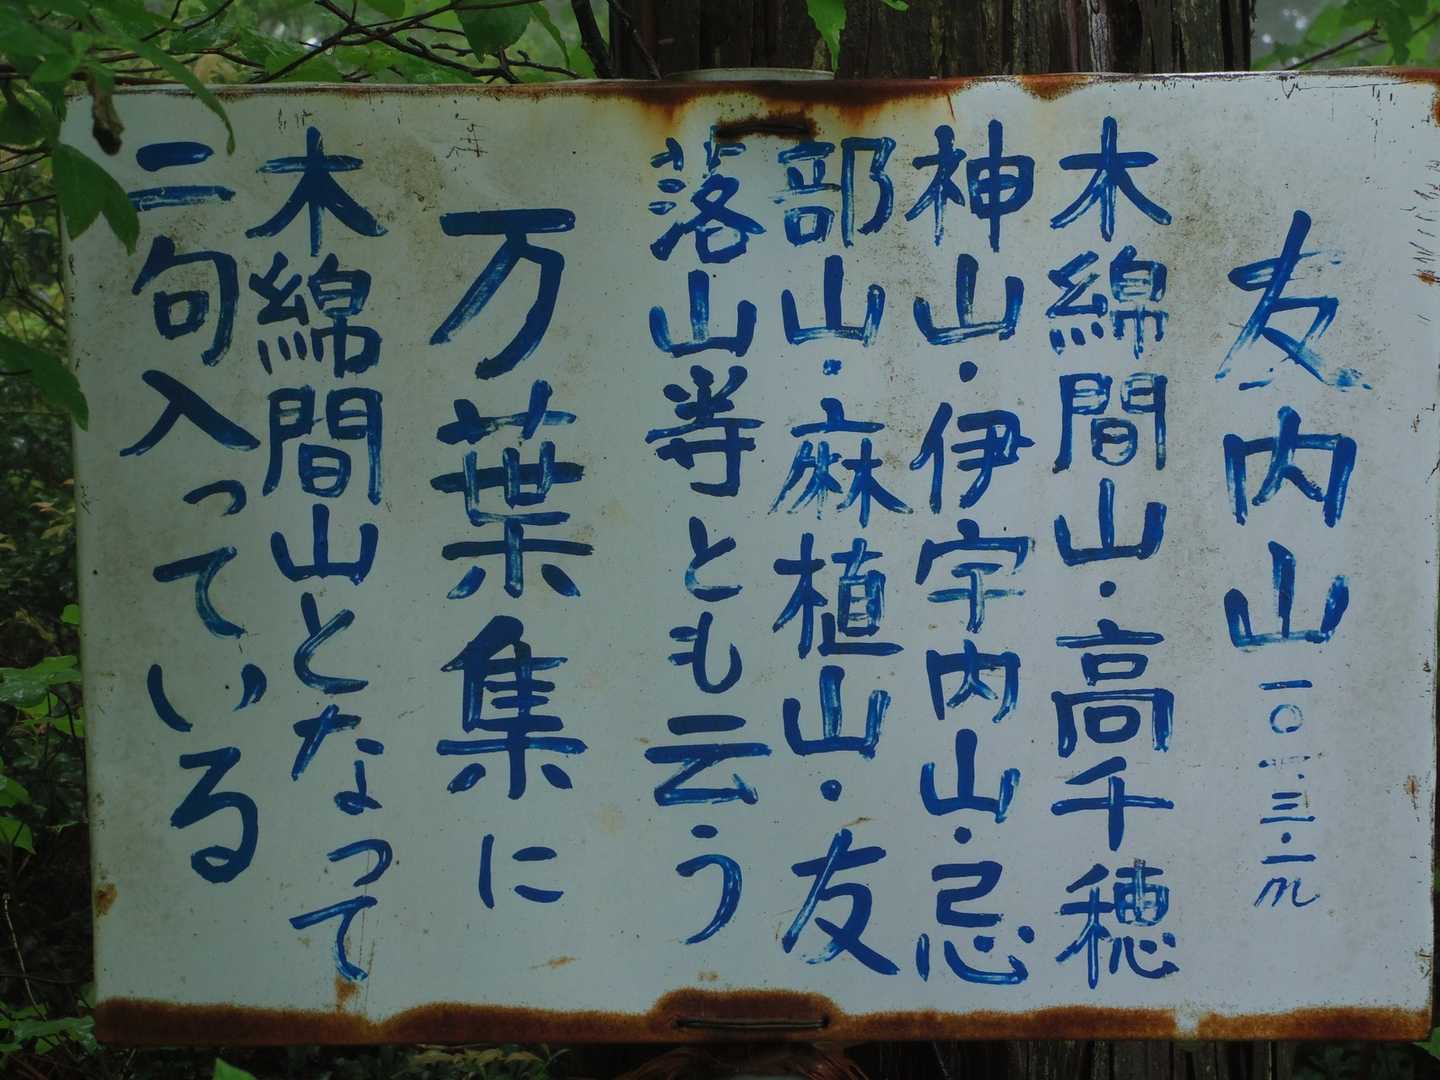 友内山 一〇七三.一m
木綿間山・高千穂
神山・伊宇内山・忌
部山・麻植山・友
落山等とも云う
万葉集に
木綿間山となって
二句入っている